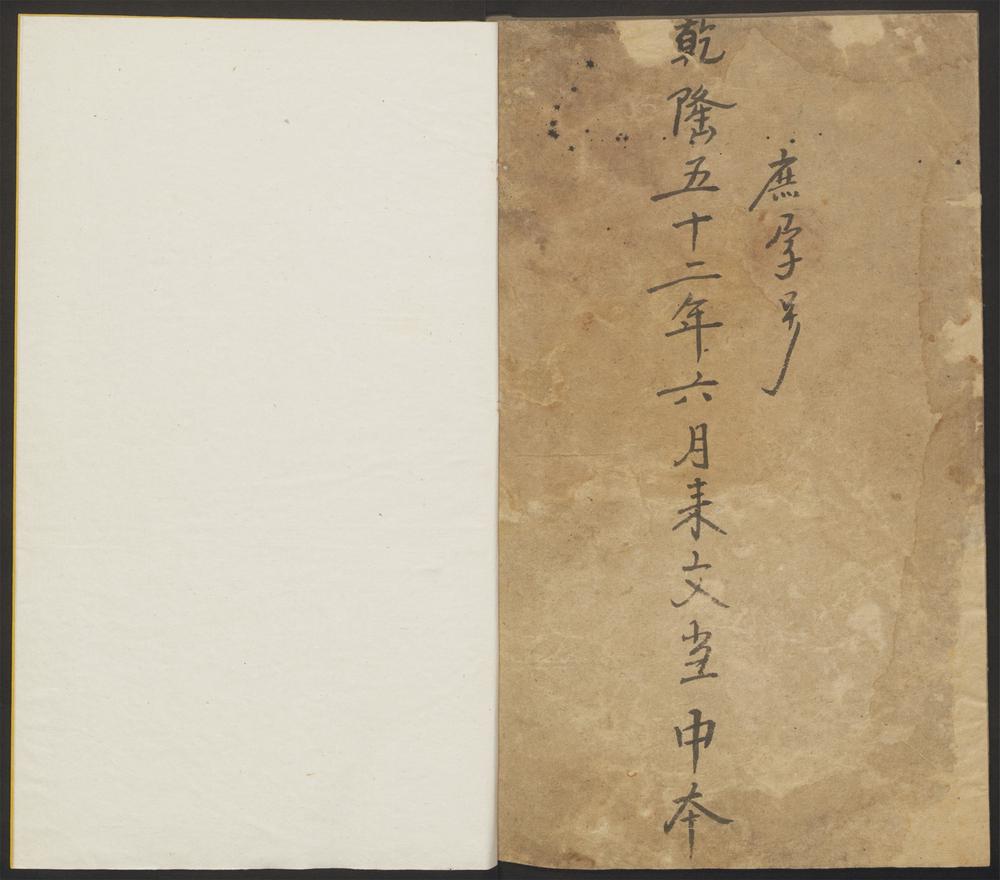 庶字号
乾隆五十二年六月耒文堂申本